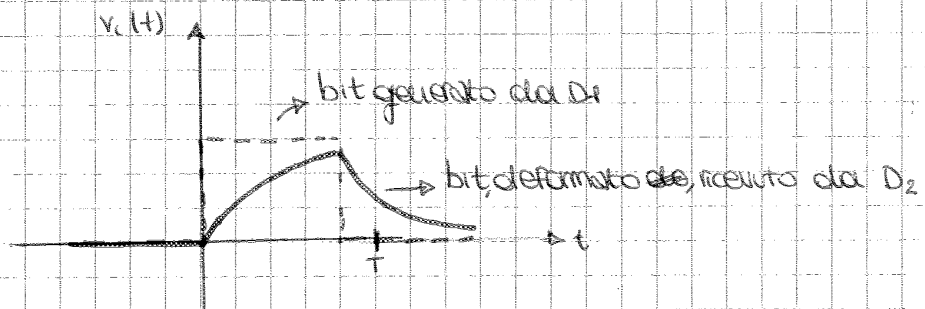 vc(t)
bit generato da D1
bit, deformato, ricevuto da D2
t
T